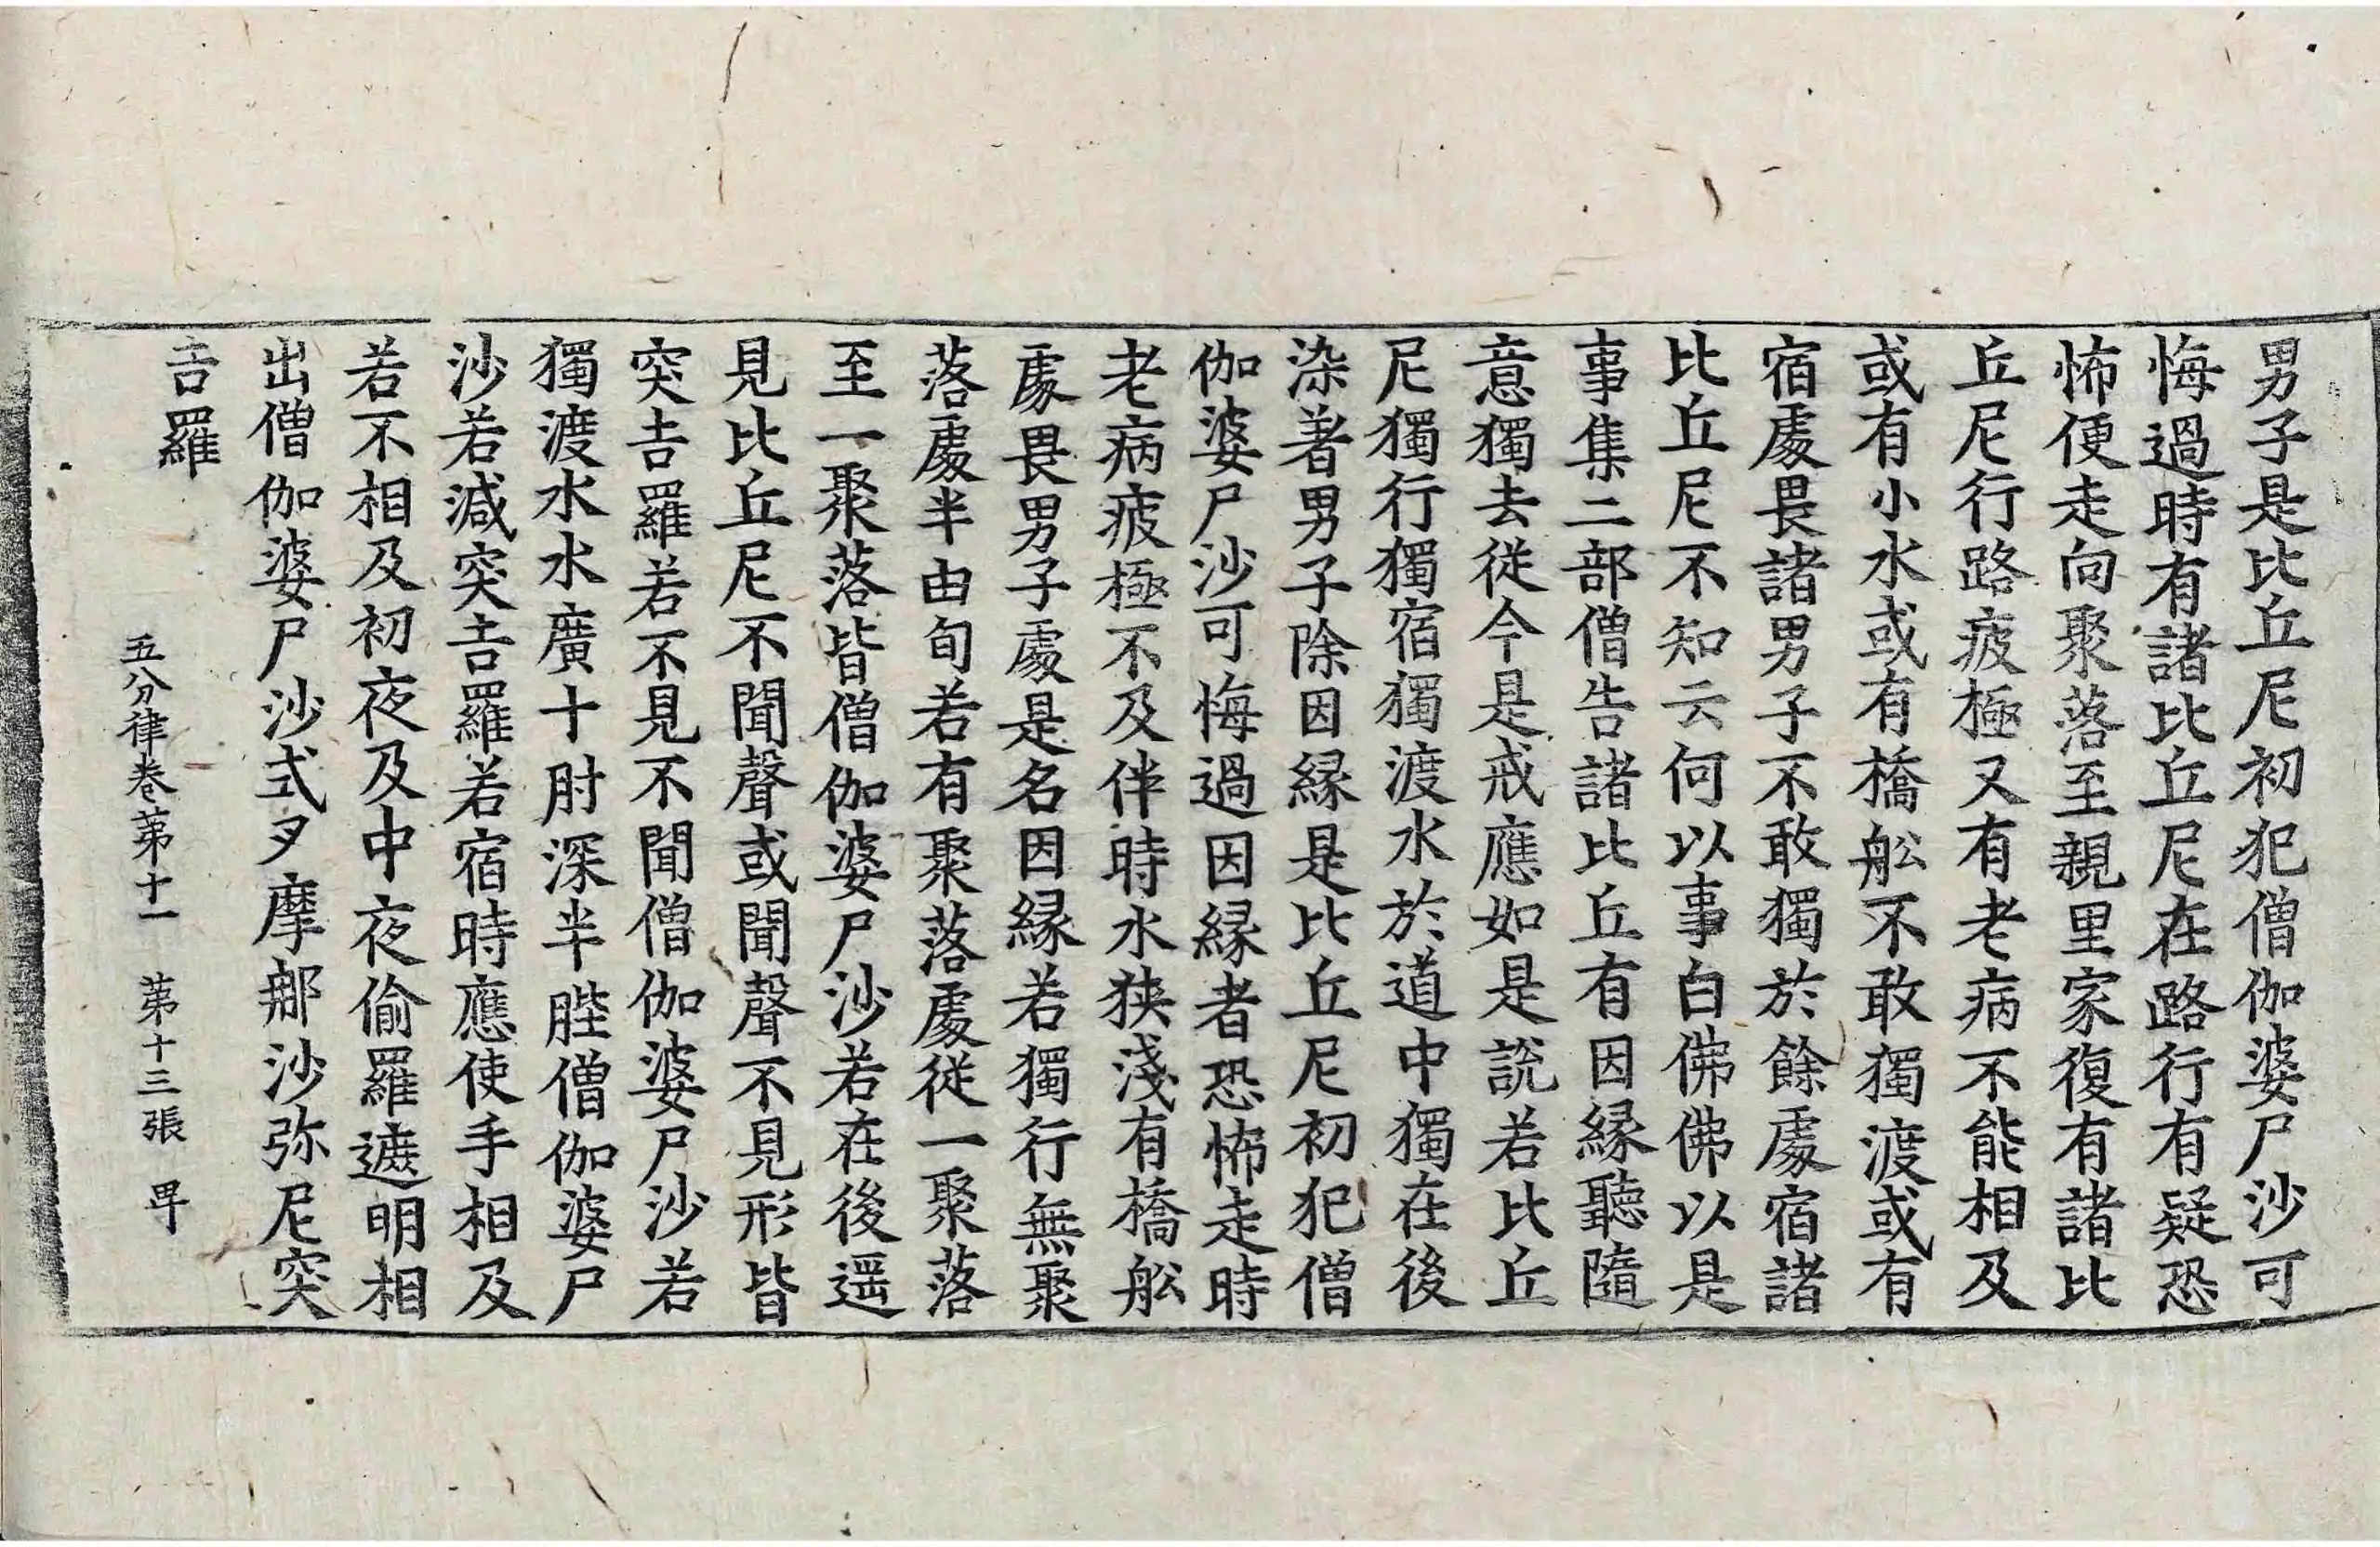 男子是比丘尼初犯僧伽婆尸沙可
悔過時有諸比丘尼在路行有疑恐
怖便走向聚落至親里家復有諸比
丘尼行路疲極又有老病不能相及
或有小水或有橋舩不敢獨渡或有
宿處畏諸男子不敢獨於餘處宿諸
比丘尼不知云何以事白佛佛以是
事集二部僧告諸比丘有因縁聽隨
意獨去従今是戒應如是説若比丘
尼獨行獨宿獨渡水於道中獨在後
染著男子除因縁是比丘尼初犯僧
伽婆尸沙可悔過因縁者恐怖走時
老病疲極不及伴時水狹淺有橋舩
處畏男子處是名因縁若獨行無聚
落處半由旬若有聚落處従一聚落
至一聚落皆僧伽婆尸沙若在後遥
見比丘尼不聞聲或聞聲不見形皆
突吉羅若不見不聞僧伽婆尸沙若
獨渡水水廣十肘深半䏶僧伽婆尸
沙若減突吉羅若宿時應使手相及
若不相及初夜及中夜偷羅遮明相
出僧伽婆尸沙式叉摩那沙弥尼突
吉羅
五分律卷第十一 第十三張 甲